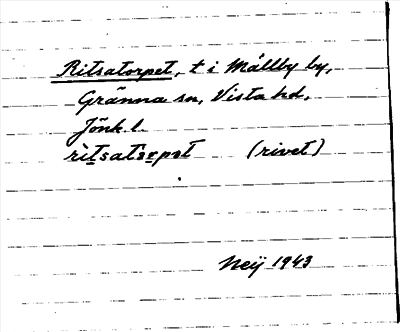 Ritsatorpet, t i Mållby by,
Gränna sn, Vista hd,
Jönk. l.
ritsatorpet (rivet)
Neij 1943